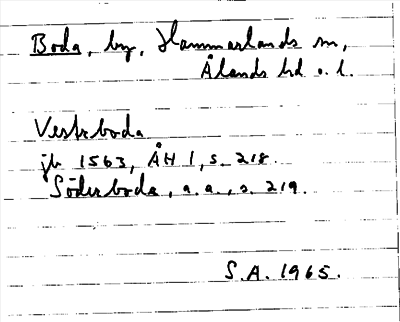 Boda, by, Hammarlands sn,
Ålands hd o. l.
Vestrboda
jb 1563, ÅH 1, s. 218.
Söderboda, a.a., s. 219.
S.A. 1965.